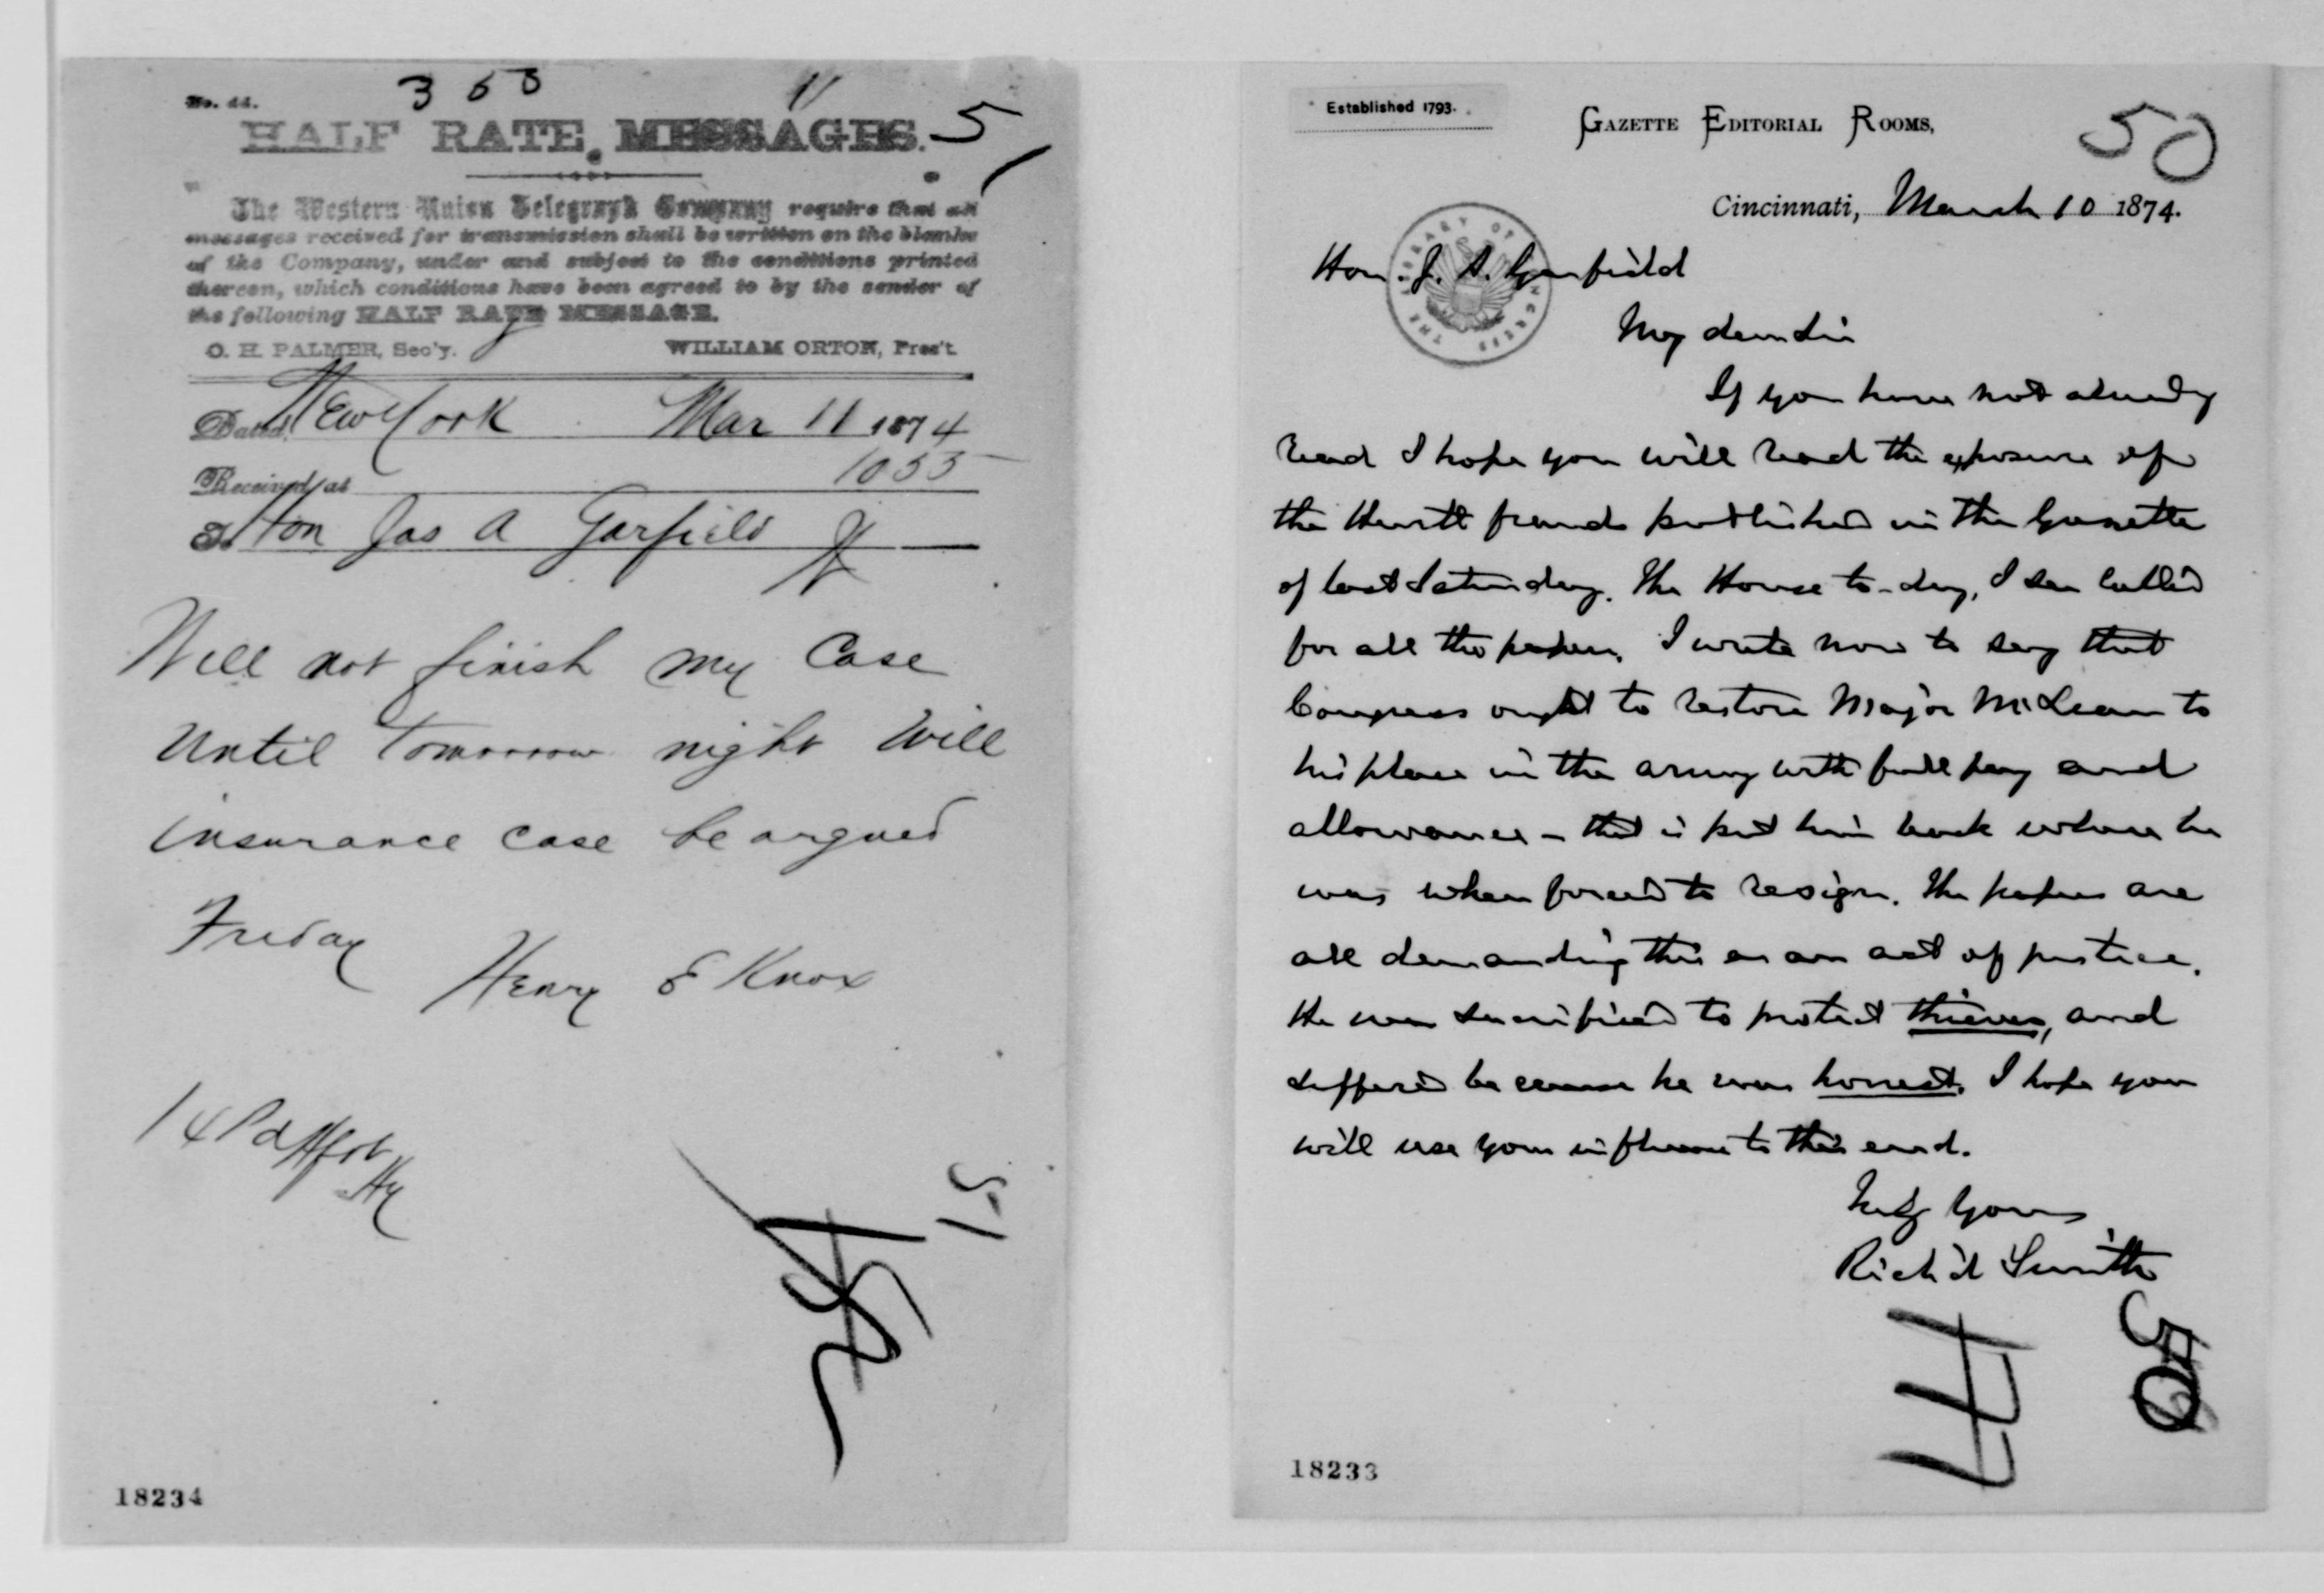 No. 44.
355
51
HALF RATE MESSAGES.
The Western Union Telegraph Company require that all
messages received for transmission shall be written on the blanks
of the Company, under and subject to the conditions printed
thereon, which conditions have been agreed to by the sender of
the following HALF RATE MESSAGE.
O. H. PALMER, Sec'y. WILLIAM ORTON, Pres't.
Dated, New York Mar 11 1874
Received at 1055
To Hon Jas A Garfield
Will not finish my Case
Until Tomorrow night Will
insurance case be argued
Friday
Henry E Knox
14 Pd
51
18234
Established 1793.
GAZETTE EDITORIAL ROOMS,
50
Cincinnati, March 10 1874.
THE LIBRARY OF CONGRESS
Hon. J. A. Garfield
My dear Sir
If you have not already
read I hope you will read the exposure of
the Hewitt frauds published in the Gazette
of last Saturday. The House to-day, I see called
for all the papers. I write now to say that
Congress ought to restore Major McLean to
his place in the army with full pay and
allowances – that is put him back where he
was when forced to resign. The papers are
all demanding this as an act of justice.
He was sacrificed to protect thieves, and
suffered because he was honest. I hope you
will use your influence to this end.
Truly Yours
Rich'd Smith
50
18233